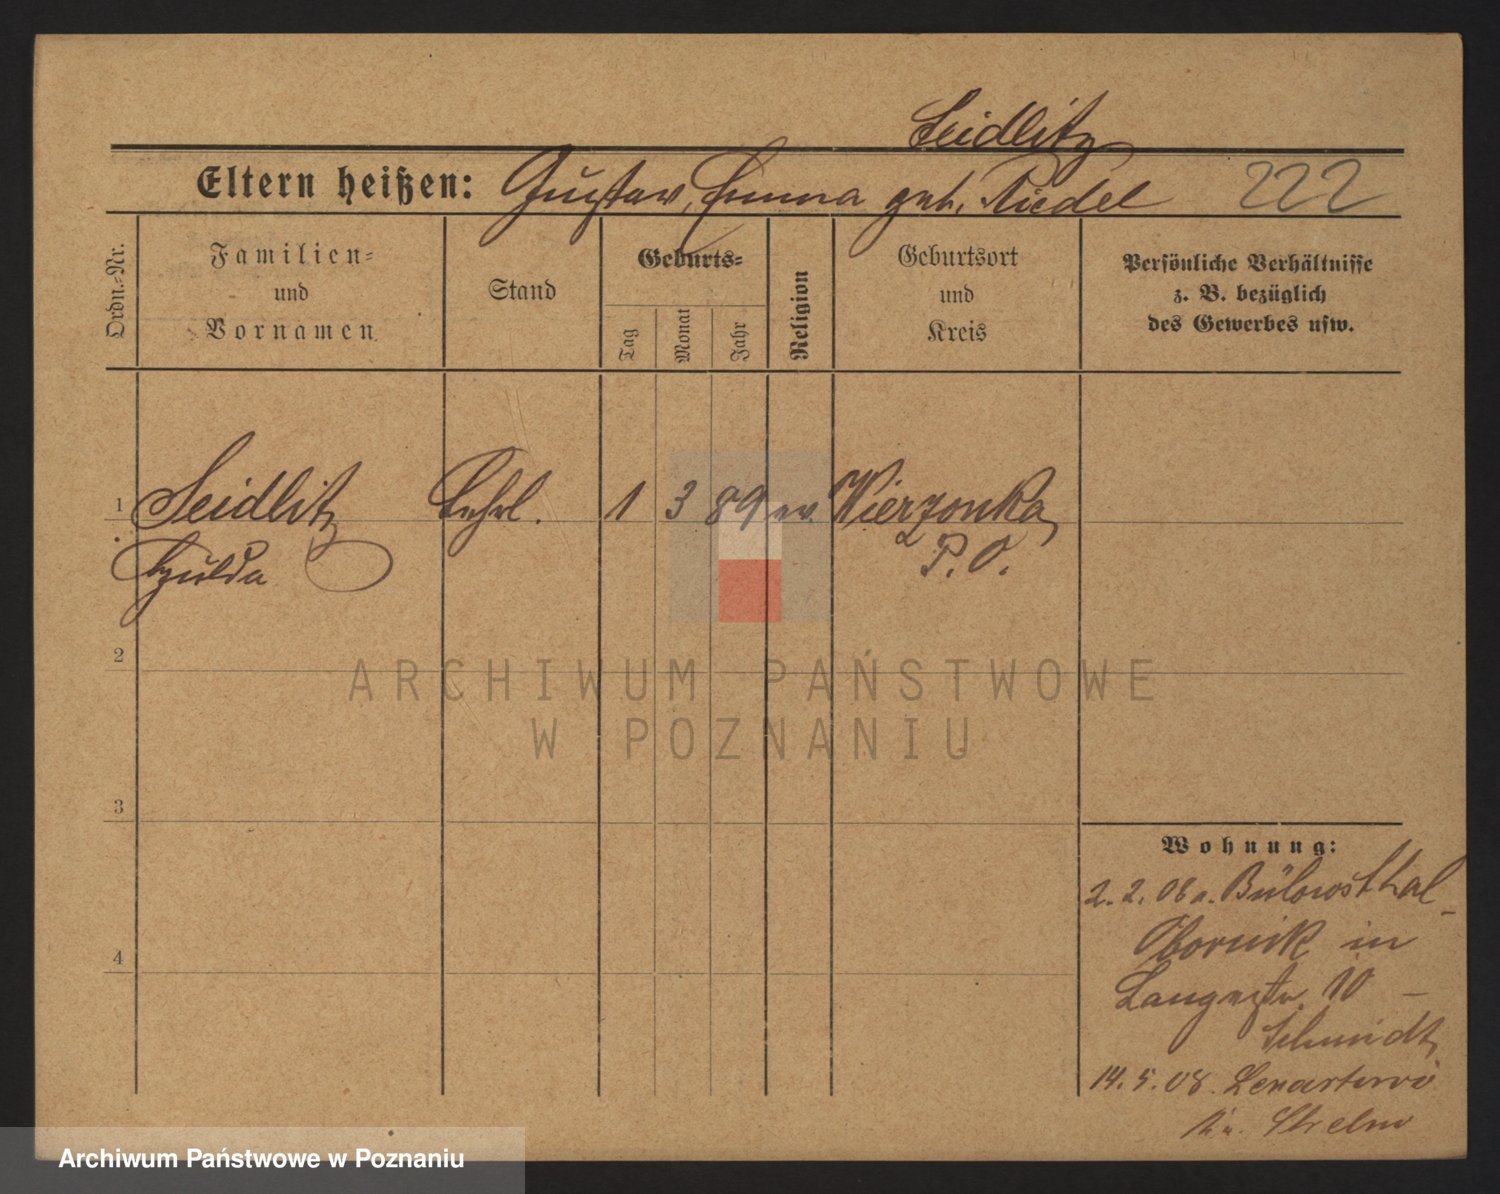 Seidlitz
Eltern heißen: Gustav, Emma geb. Riedel 222
Ordn.-Nr.
Familien-
und
Vornamen
Stand
Geburts-
Tag
Monat
Jahr
Religion
Geburtsort
und
Kreis
Persönliche Verhältnisse
z. B. bezüglich
des Gewerbes usw.
1 Seidlitz Lehrl. 1 3 89 ev Wierzonka
Hulda P. O.
2
ARCHIWUM PAŃSTWOWE
W POZNANIU
3
Wohnung:
2. 2. 08 a. Bülowsthal
Obornik in
4
Langestr. 10 –
Schmidt
14. 5. 08. Lenartowo
Kr. Strelno
Archiwum Państwowe w Poznaniu